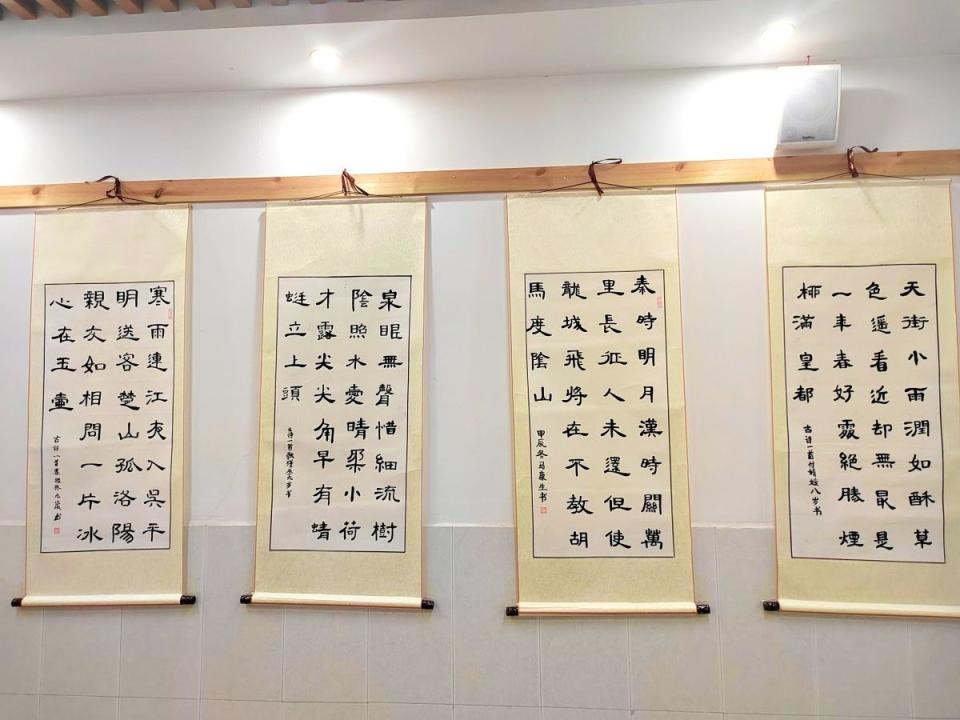 寒雨連江夜入吳平
明送客楚山孤洛陽
親友如相問一片冰
心在玉壺
古诗一首
泉眼無聲惜細流樹
陰照水愛晴柔小荷
才露尖尖角早有蜻
蜓立上頭
古诗一首 九岁书
秦時明月漢時關萬
里長征人未還但使
龍城飛將在不教胡
馬度陰山
甲辰冬马 生书
天街小雨潤如酥草
色遥看近却無最是
一年春好處絕勝煙
柳滿皇都
古诗一首付 八岁书